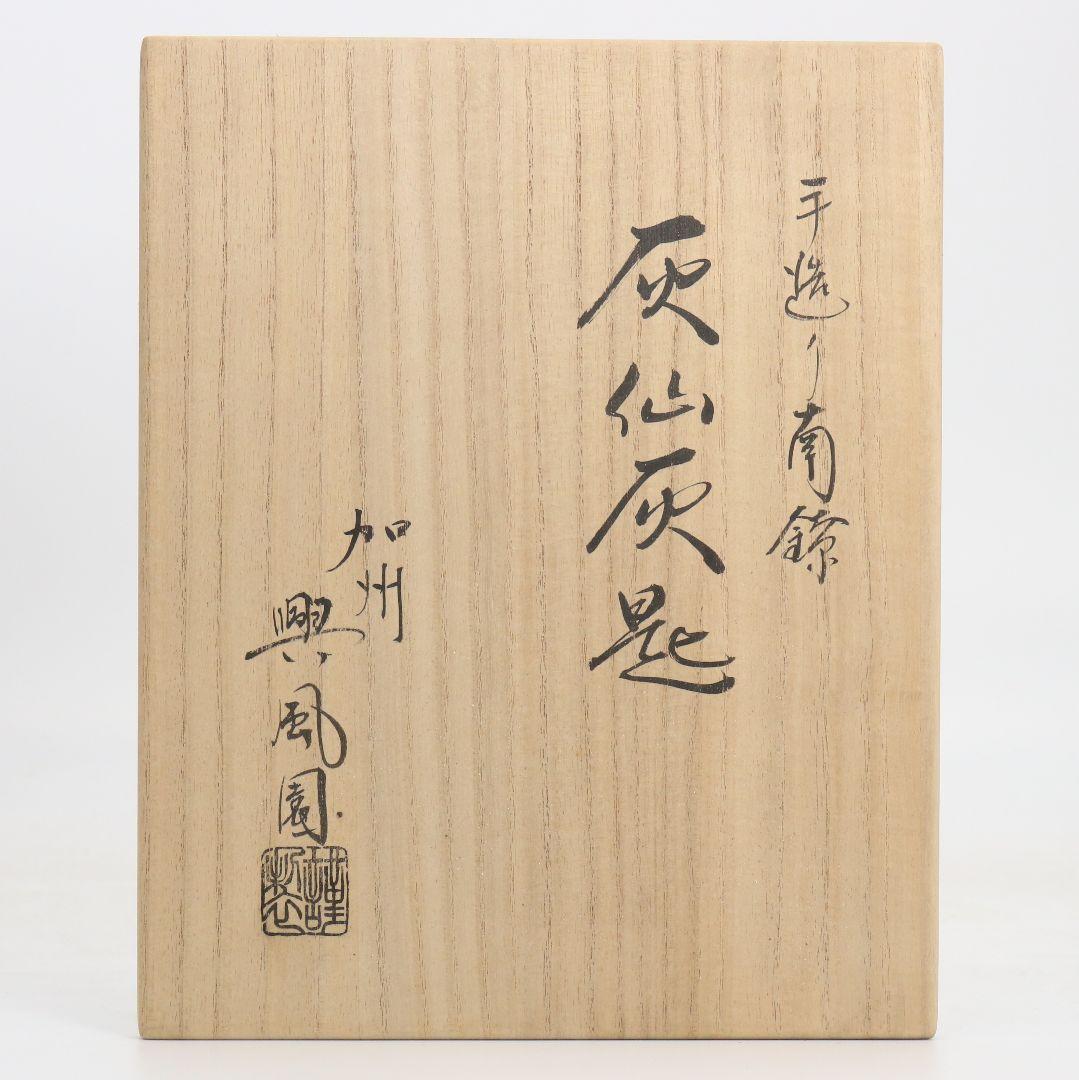 手造り南鐐
灰仙灰匙
加州
興風園
謹製